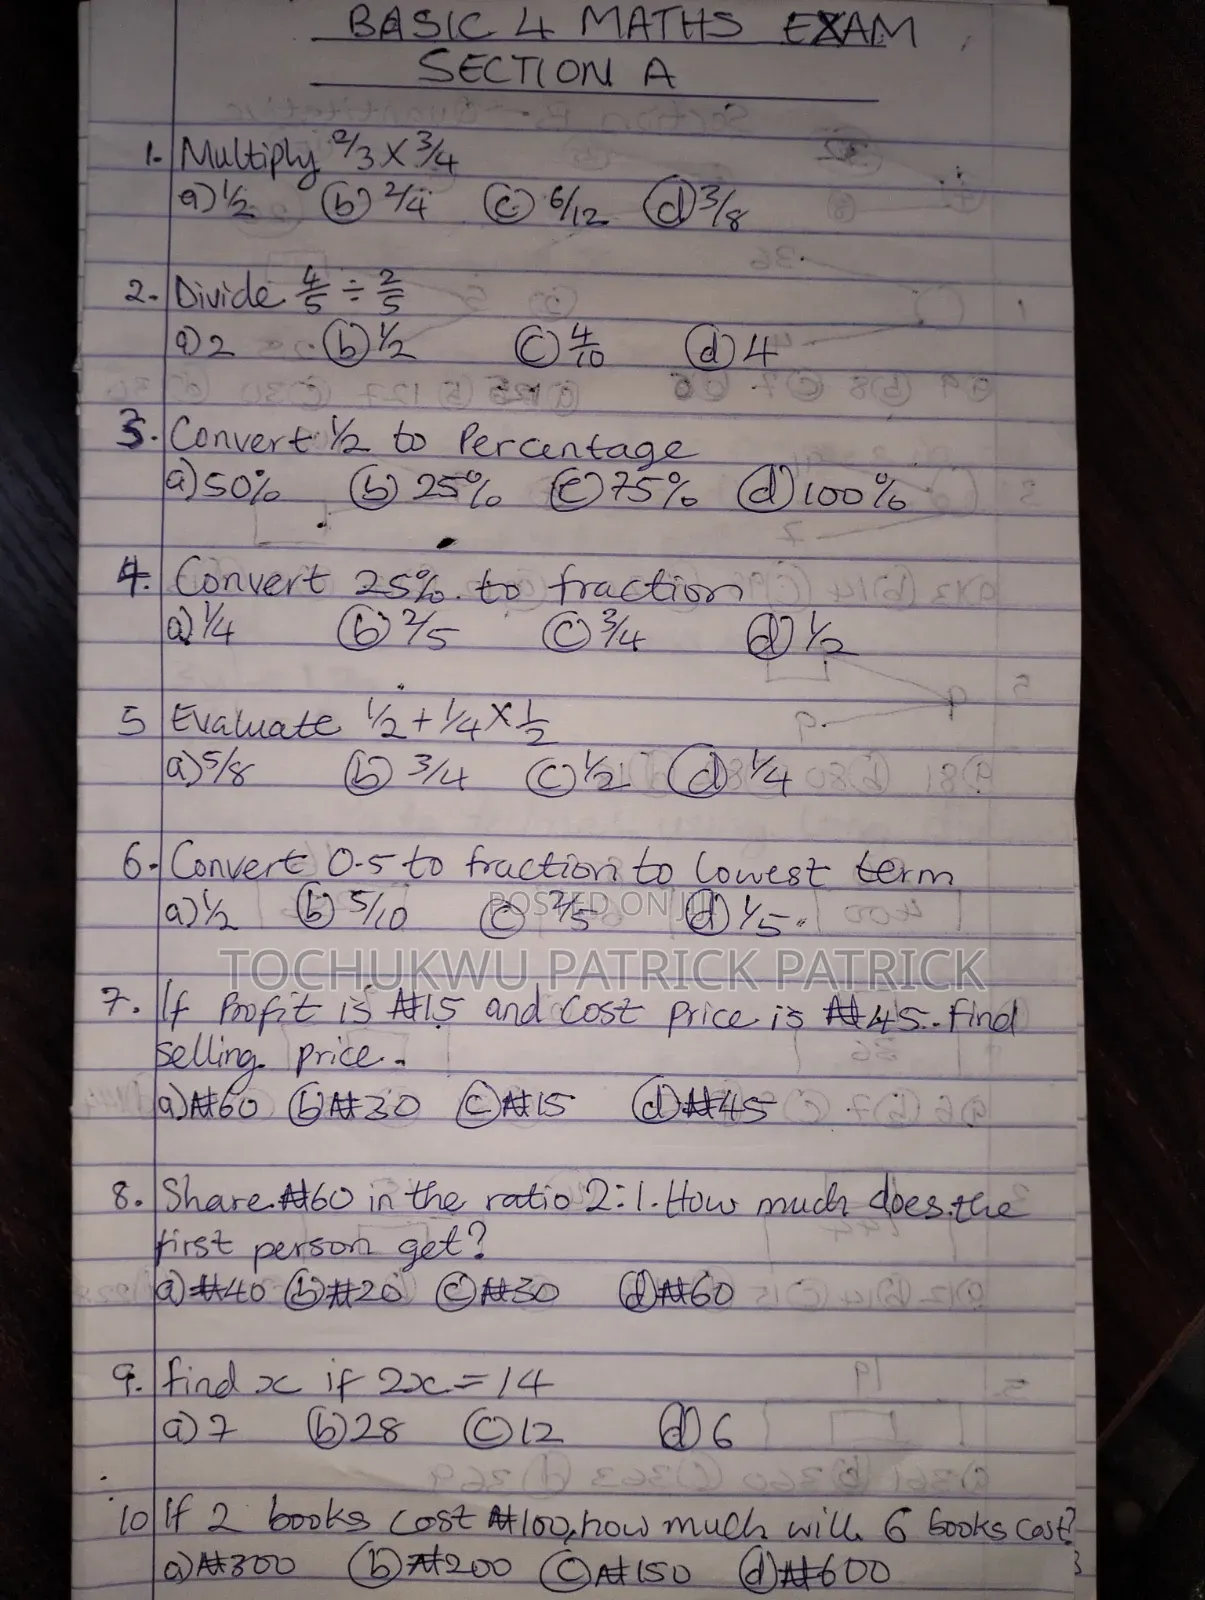 BASIC 4 MATHS EXAM
SECTION A
1. Multiply 2/3 X 3/4
a) 1/2 (b) 2/4 (c) 6/12 (d) 3/8
2. Divide 4/5 ÷ 2/5
a) 2 (b) 1/2 (c) 4/10 (d) 4
3. Convert 1/2 to Percentage
a) 50% (b) 25% (c) 75% (d) 100%
4. Convert 25% to fraction
a) 1/4 (b) 2/5 (c) 3/4 (d) 1/2
5 Evaluate 1/2 + 1/4 X 1/2
a) 5/8 (b) 3/4 (c) 1/2 (d) 1/4
6. Convert 0.5 to fraction to lowest term
a) 1/2 (b) 5/10 (c) 2/5 (d) 1/5.
POSTED ON
TOCHUKWU PATRICK PATRICK
7. If Profit is ₦15 and Cost price is ₦45. Find
selling price.
a) ₦60 (b) ₦30 (c) ₦15 (d) ₦45
8. Share ₦60 in the ratio 2:1. How much does the
first person get?
a) ₦40 (b) ₦20 (c) ₦30 (d) ₦60
9. find x if 2x = 14
a) 7 (b) 28 (c) 12 (d) 6
10 If 2 books cost ₦100, how much will 6 books cost?
a) ₦300 (b) ₦200 (c) ₦150 (d) ₦600